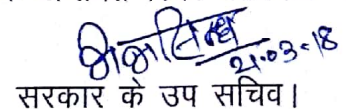 21.03.18
सरकार के उप सचिव।